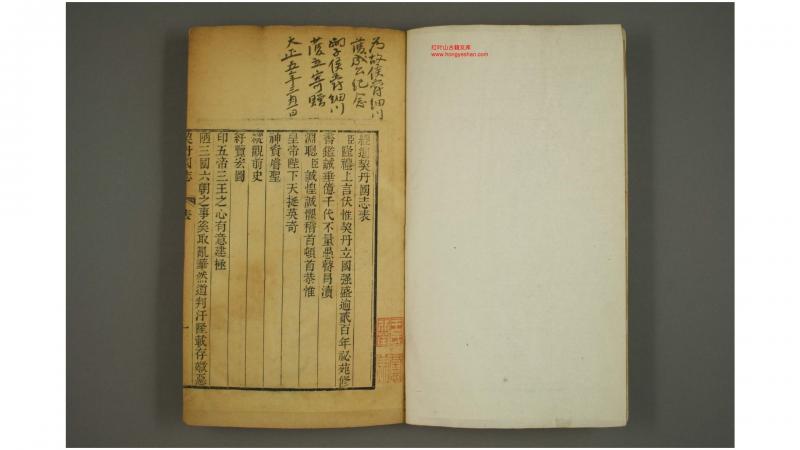 红叶山古籍文库
www.hongyeshan.com
為故侯爵細川
護成公紀念
嗣子侯爵細川
護立寄贈
大正五年三月一日
經進契丹國志表
臣隆禮上言伏惟契丹立國强盛逾貳百年祕苑修
書鑑誡垂億千代不量愚瞽昌瀆
淵聰臣誠惶誠懼稽首頓首恭惟
皇帝陛下天挺英奇
神資睿聖
縱觀前史
紆覽宏圖
印五帝三王之心有意建極
陋三國六朝之事奚取亂華然道判汙隆載存㣲惡
契丹國志
表
一